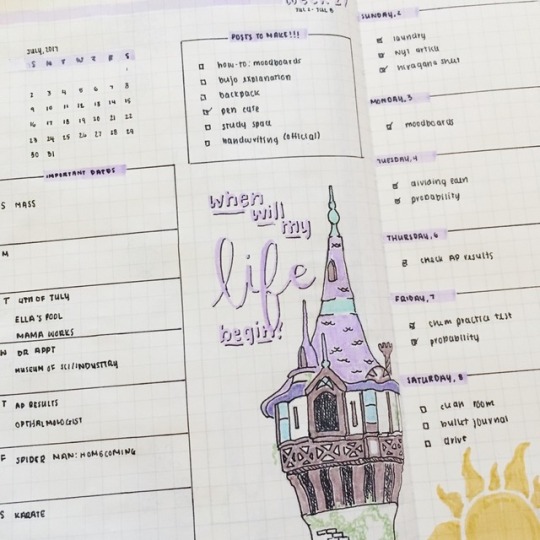 WEEK 27
JUL 2 - JUL 8
JULY, 2017
S M T W T F S
1
2 3 4 5 6 7 8
9 10 11 12 13 14 15
16 17 18 19 20 21 22
23 24 25 26 27 28 29
30 31
IMPORTANT DATES
S MASS
M
T 4TH OF JULY
ELLA'S POOL
MAMA WORKS
W DR APPT
MUSEUM OF SCI/INDUSTRY
T AP RESULTS
OPTHALMOLOGIST
F SPIDER MAN: HOMECOMING
S KARATE
POSTS TO MAKE!!!
how-to: moodboards
bujo explanation
backpack
pen case
study space
handwriting (official)
when
will
my
life
begin?
SUNDAY, 2
laundry
NYT article
hiragana sheet
MONDAY, 3
moodboards
TUESDAY, 4
dividing
probability
THURSDAY, 6
check AP results
FRIDAY, 7
chem practice test
probability
SATURDAY, 8
clean room
bullet journal
drive